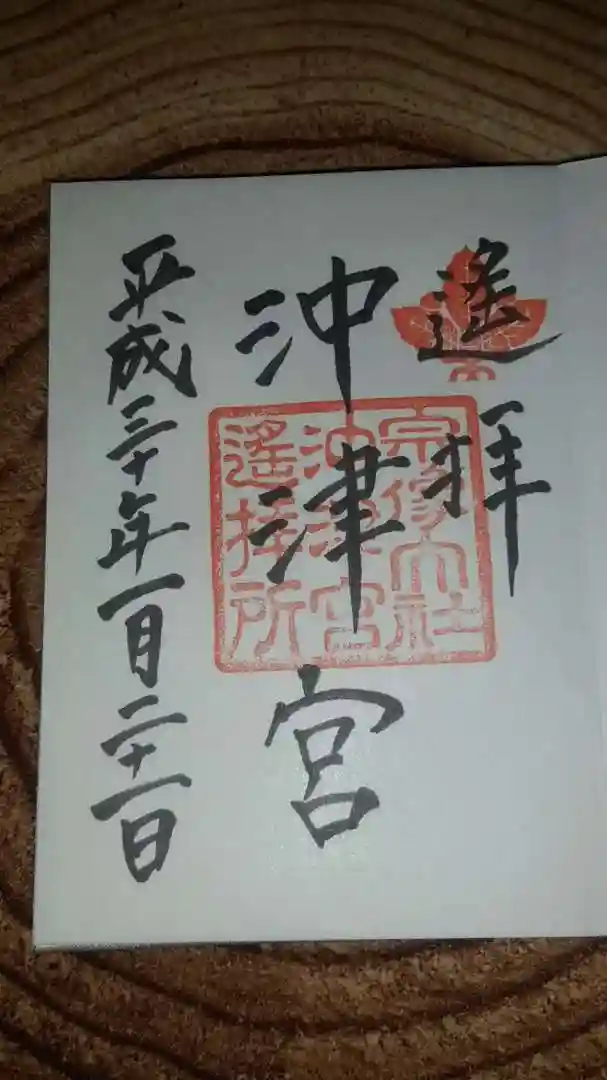 遙拝
沖津宮
平成三十年一月二十一日
宗像大社
沖津宮
遙拝所